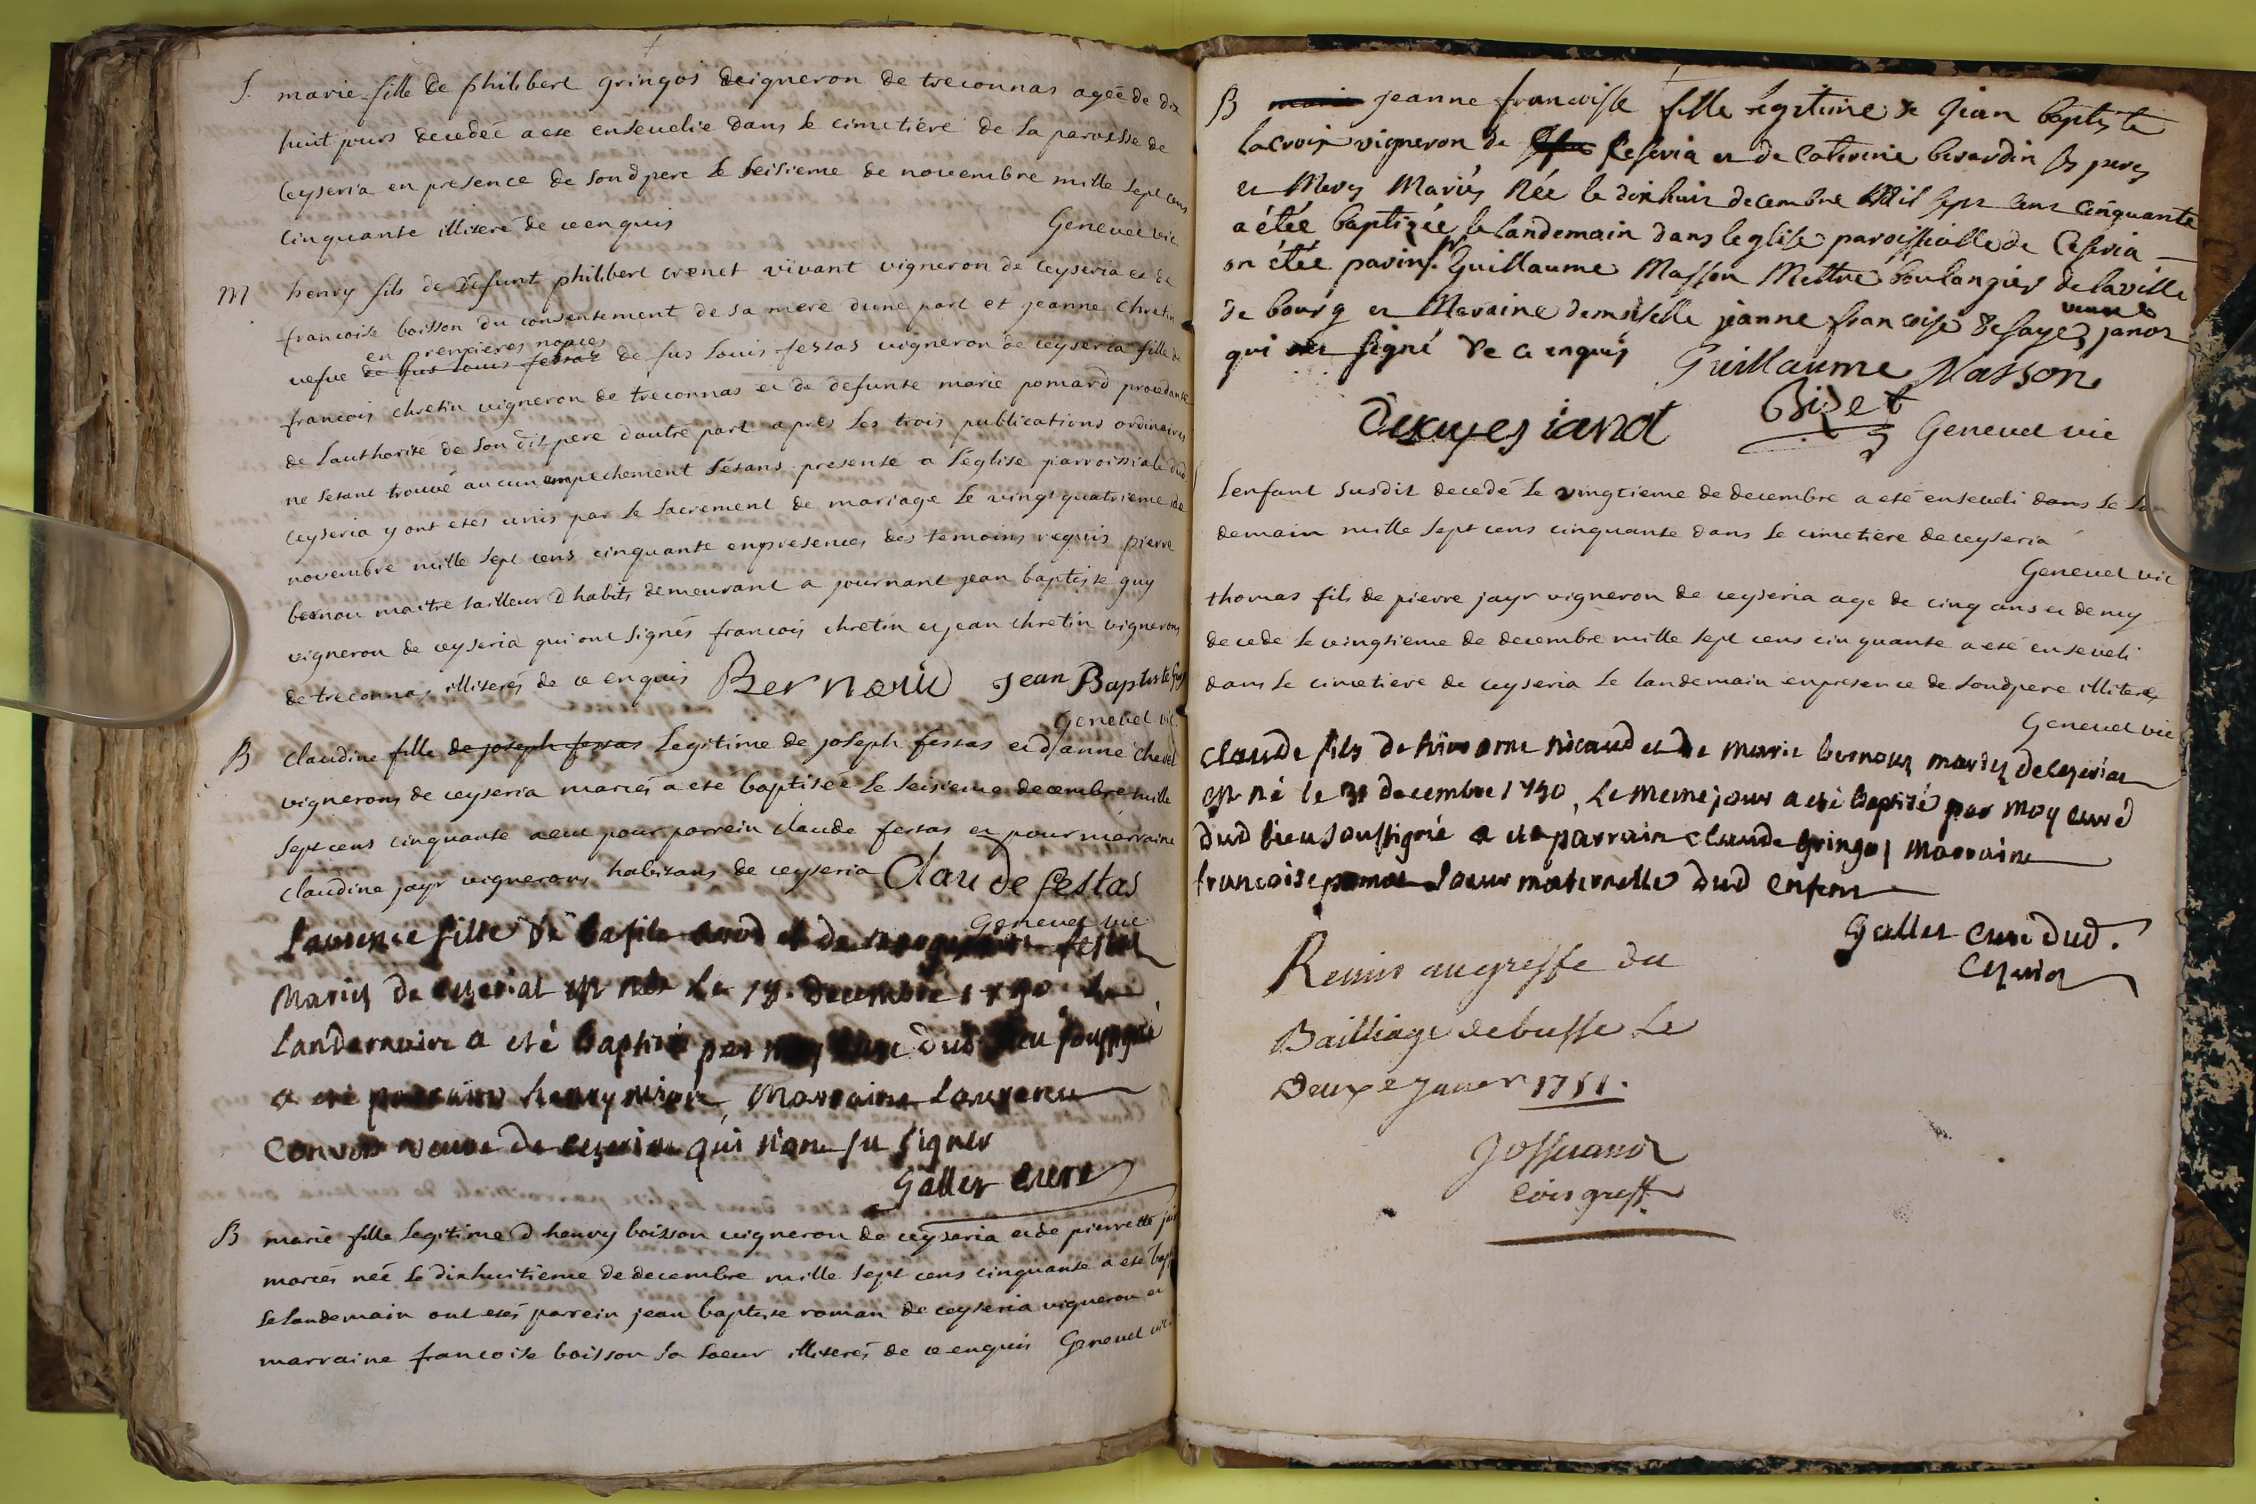 S. marie fille de philibert gringos vigneron de treconnas ageé de dix
huit jours decedeé a ete ensevelie dans le cimetiére de la paroisse de
Ceyseria en presence de sondpere le seisieme de novembre mille sept cens
cinquante illiteré de ce enquis
Genevet vic
M henry fils de defunt philibert crenet vivant vigneron de ceyseria et de
francoise boisson du consentement de sa mere dune part et jeanne chretin
en premieres nopces
vefve de fus louis festas de fus louis festas vigneron de ceyseria fille de
francois chretin vigneron de treconnas et de defunte marie pomard procedante
de lauthorité de son dit pere dautre part apres les trois publications ordinaires
ne setant trouvé aucun empechement setans presenté a léglise parroissiale dud
ceyseria y ont etes unis par le sacrement de mariage le vingt quatrieme de
novembre mille sept cens cinquante en presences des temoins requis pierre
bernou maitre tailleur d habits demeurant a journant jean baptiste guy
vigneron de ceyseria qui ont signés francois chretin et jean chretin vignerons
de treconnas illiterés de ce enquis Bernoud Jean Baptiste Guy
Genevet vic.
B Claudine fille de joseph festas Legitime de joseph festas et d'anne chevet
vignerons de ceyseria mariés a eté baptisée le seisieme decembre mille
sept cens cinquante a eu pour parrein claude festas et pour marraine
claudine jayr vignerons habitans de ceyseria Claude festas
Genevet vic
Laurence fille de basile et de festas
Mariez de ceyseriat est née le 18. decembre 1750 le
landemain a eté baptisé par moy curé dud lieu soussigné
a été parrain henry Marraine Laurence
veuve de ceyseria qui n'ont su signer
Gallet curé
B marie fille legitime d henry boisson vigneron de ceyseria et de pierrette
mariés neé le dixhuitieme de decembre mille sept cens cinquante a eté bapt
le landemain ont etés parrein jean baptiste roman de ceyseria vigneron et
marraine francoise boisson sa soeur illiterés de ce enquis Genevet vic
B marie jeanne francoisse fille legitime de Jean baptiste
lacroix vigneron de Ceseria et de Caterine berardin ses peres
et Meres Mariés Née le dixhuit decembre Mil sept cent cinquante
a étée baptizée le landemain dans leglise paroissialle de Ceseria
on étée parin sr. Guillaume Masson Mettre boulangier de la ville
de bourg et Maraine demoiselle jeanne francoise desayes veuve janot
qui ont signé de ce enquis Guillaume Masson
desayes ianot Bizet Genevet vic
Lenfant susdit decedé le vingtieme de decembre a eté enseveli dans le lan
demain mille sept cens cinquante dans le cimetiere de ceyseria
Genevet vic
thomas fils de pierre jayr vigneron de ceyseria age de cinq ans et demy
decede le vingtieme de decembre mille sept cens cinquante a eté enseveli
dans le cimetiere de ceyseria le landemain en presence de sondpere illiteré
Genevet vic
Claude fils de et de marie bernoux mariez de Ceyseriat
est né le 31 decembre 1750, le meme jour a eté baptisé par moy curé
dud lieu soussigné a eté parrain claude gringos marraine
francoise soeur maternelle dud enfant
Gallet curé dud.
Ceyseria
Remis au greffe du
Bailliage de bresse le
Deuxe Janvier 1751.